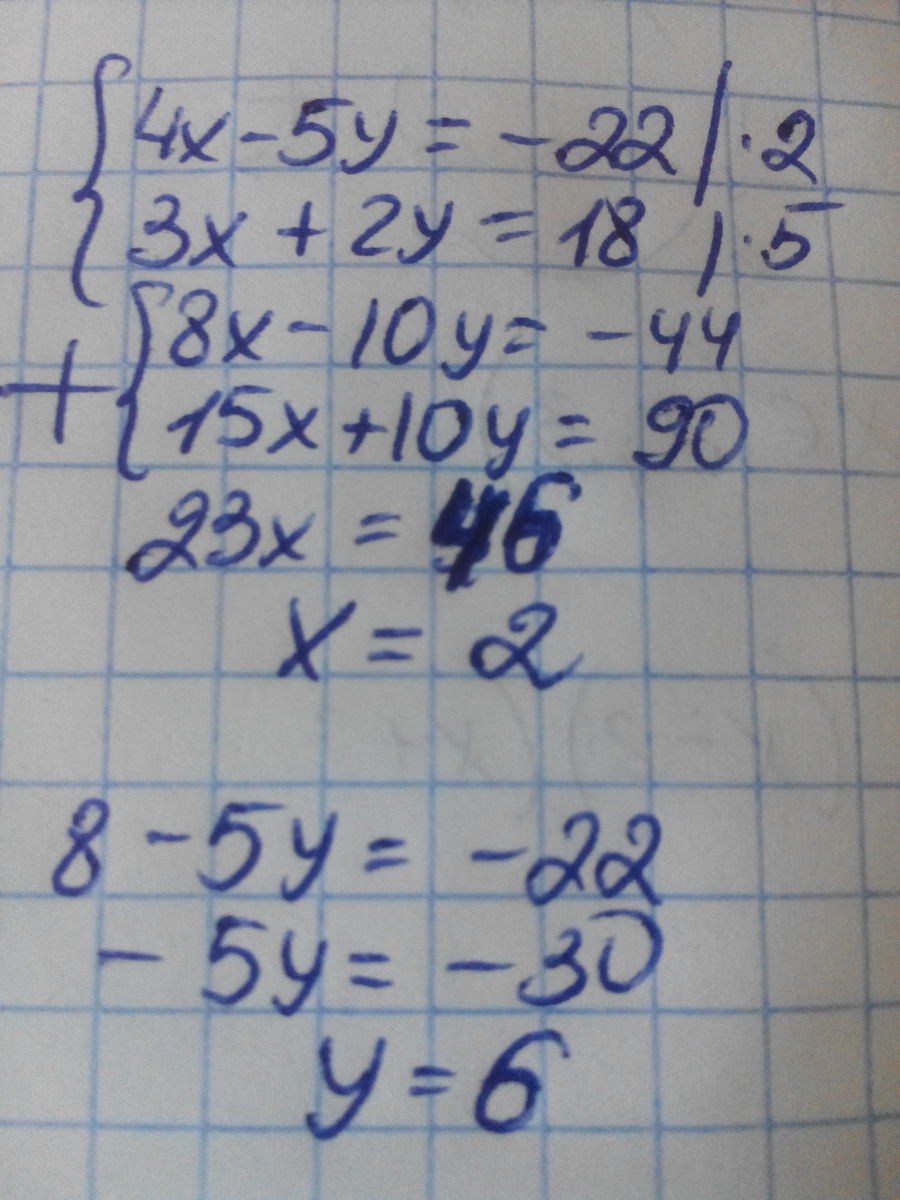 {4x - 5y = -22 | · 2
3x + 2y = 18 | · 5
+ {8x - 10y = -44
15x + 10y = 90
23x = 46
x = 2
8 - 5y = -22
- 5y = -30
y = 6